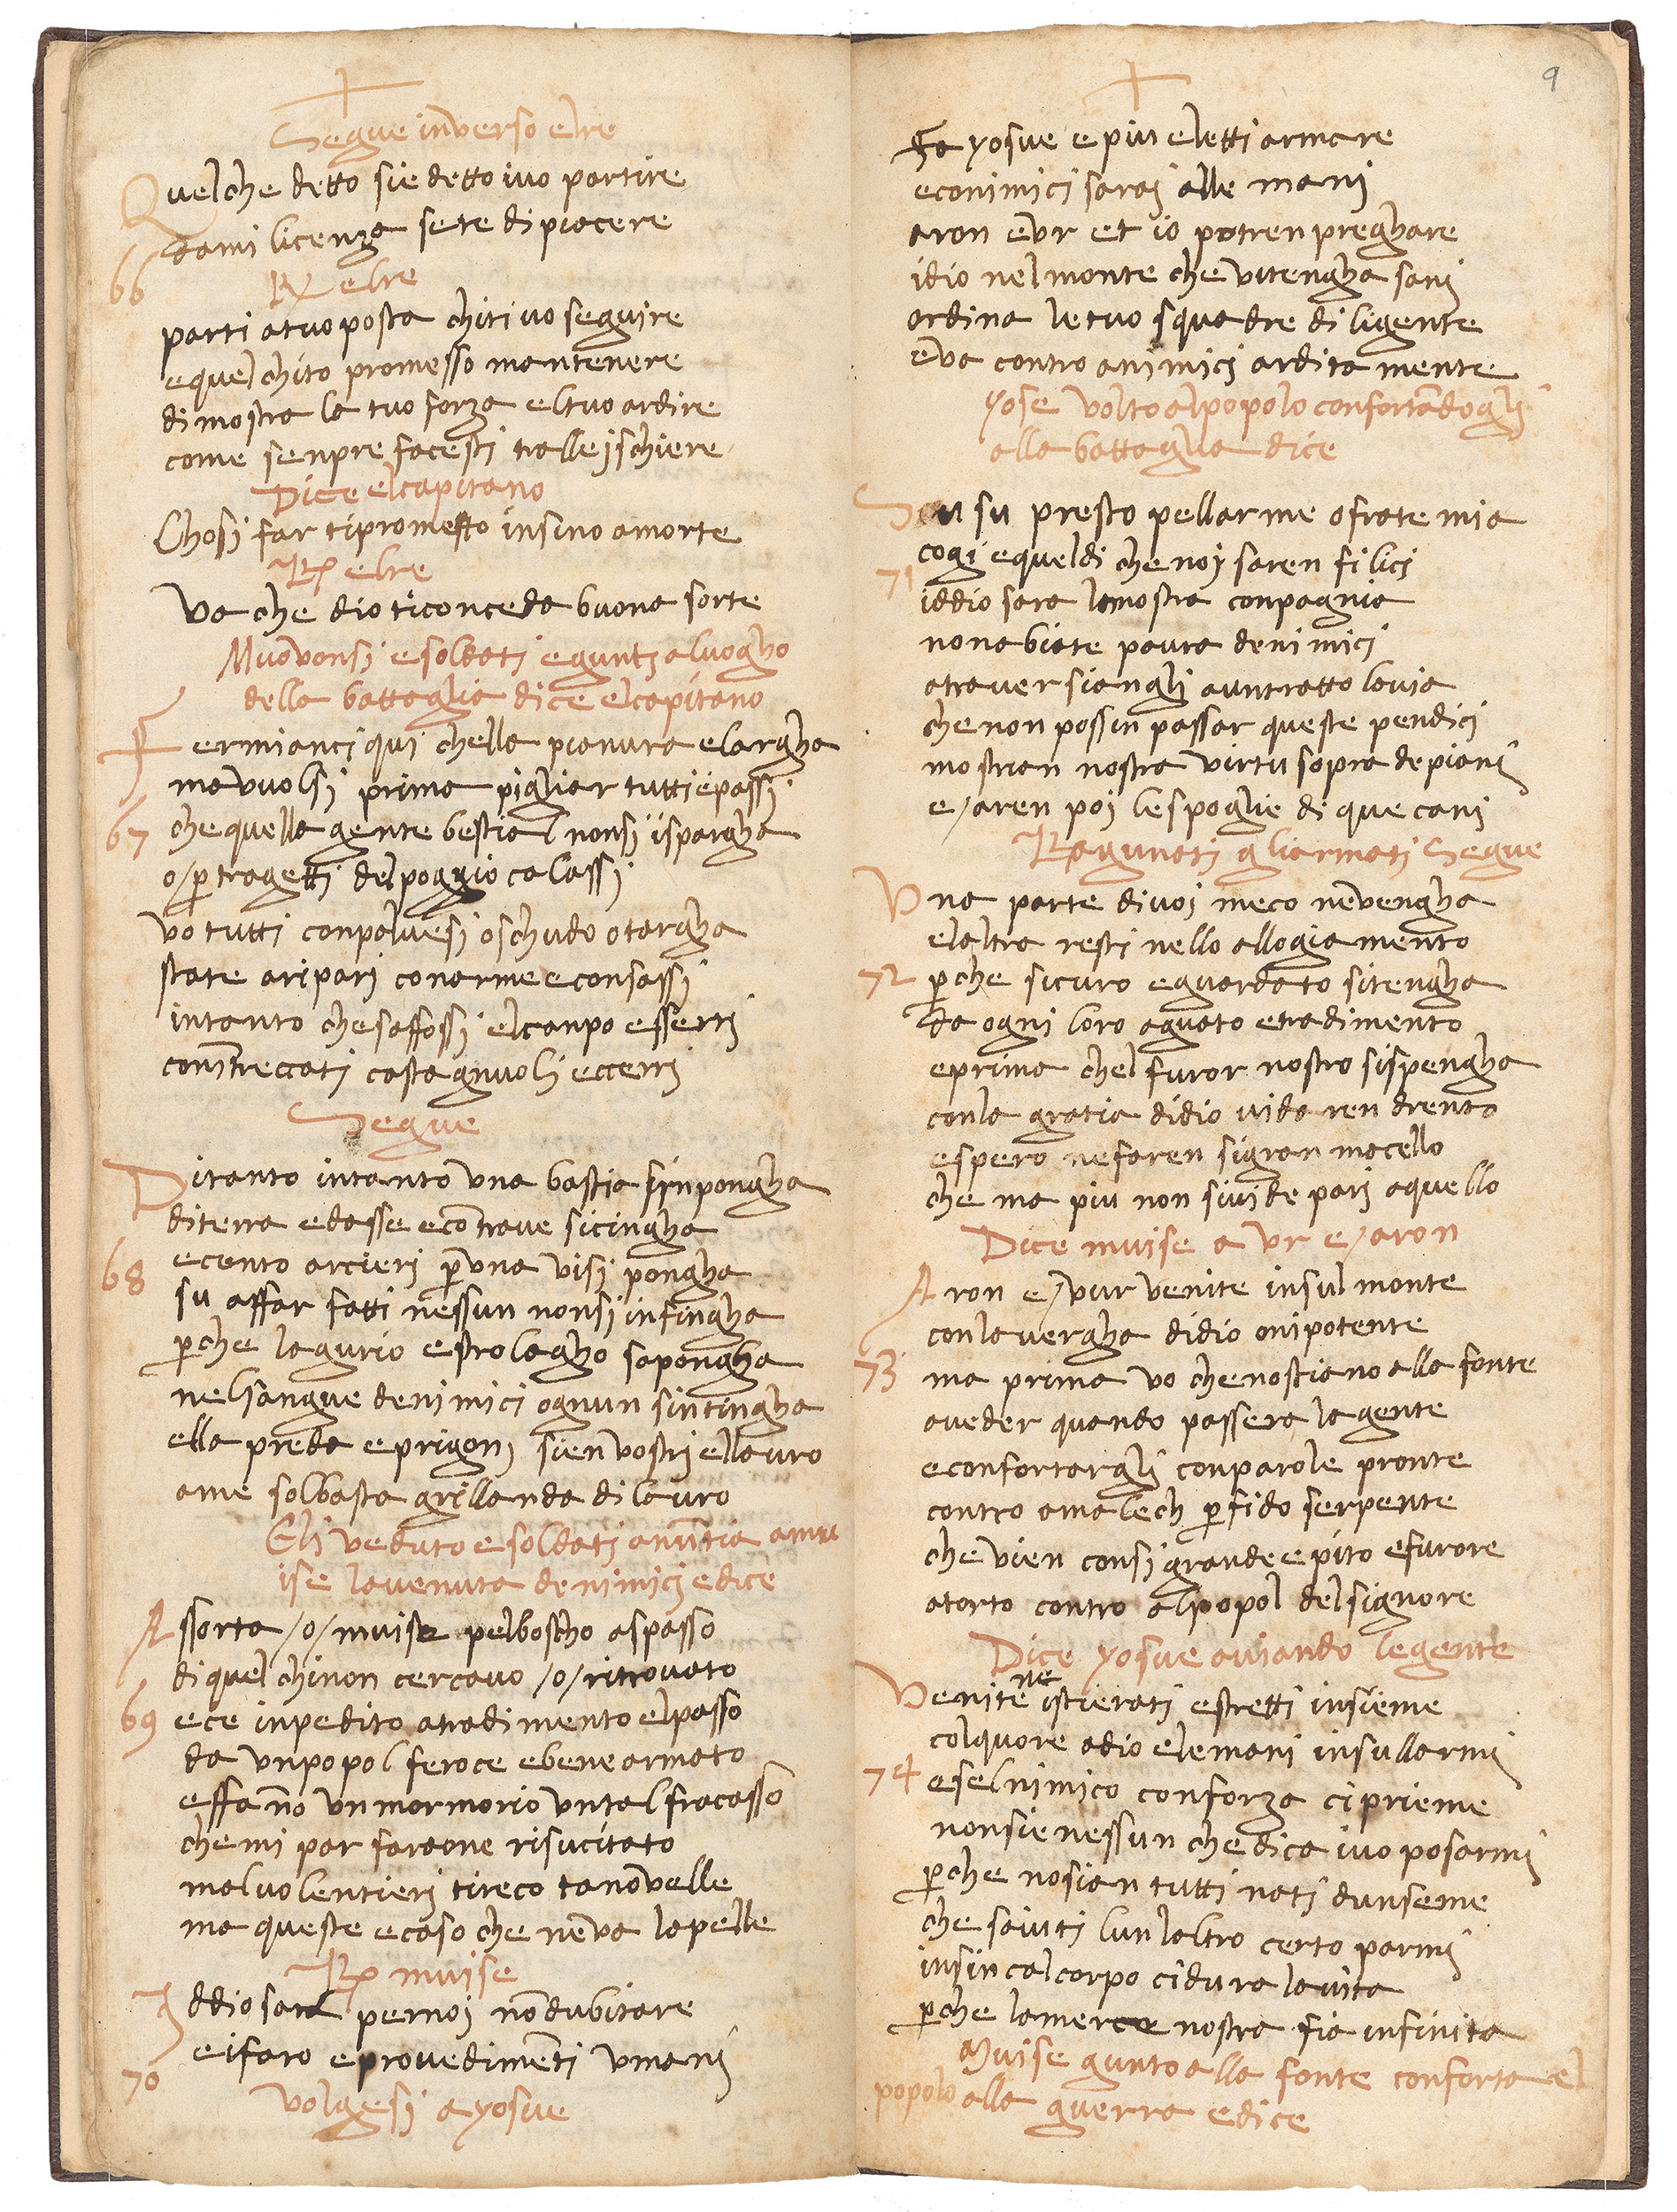 Segue inverso elre
Quelche detto sie detto ivo partire
dami licenza sete di piacere
66
R elre
parti atuo posta chiti vo seguire
equel chito promesso mantenere
di mostra la tuo forza eltuo ardire
come senpre facesti tralleischiere
Dice elcapitano
Chosi far tiprometto insino amorte
Rº elre
Va che dio ticonceda buona sorte
Muovonsi esoldati egunti aluogho
della battaglia dice elcapitano
Fermianci qui chella pianura elargha
mavuolsi prima pigliar tutti epassi
67 chequella gente bestial nonsi ispargha
o/ꝑ tragetti delpoggio calassi
vo tutti conpalvesi oschudo otargha
state aripari conarme econsassi
intanto chesaffossi elcanpo esserri
conitreccati castagnuoli eccerri
Segue
Ditanto intanto una bastia sinpongha
diterra edasse econtrave sicingha
68 ecento arcieri ꝑuna visi pongha
su affar fatti nessun nonsi infingha
ꝑche lagurio estrolagho sapongha
nelsangue denimici ognun sintingha
ella preda eprigoni sien vostri ellauro
ame solbasta grillanda di lauro
Gli veduto esoldati anuntia amu
ise lavenuta denimici edice
Assorta /o/ muise pelboscho aspasso
diquel chinon cercavo /o/ ritrovato
69 ece inpedito atradimento elpasso
da unpopol feroce ebene armato
effanno un mormorio untal fracasso
chemi par faraone risucitato
malvolentieri tireco tanovelle
ma queste ecaso che neva lapelle
Rº muise
Iddio sara pernoi nondubitare
eifaro eprovedimenti umani
70
volgesi ayosue
9
Fa yosue epiu eletti armare
econimici sarai alle mani
aron eur et io potren preghare
idio nelmonte che vitengha sani
ordina letuo squadre diligente
eva contro animici ardita mente
yose volto alpopolo confortandogli
alla battaglia dice
Su su presto pellarme ofrate mia
71 cogi equeldi chenoi saren filici
iddio sara lanostra conpagnia
nonabiate paura denimici
atraversiangli auntratto lavia
chenon possin passar queste pendici
mostrian nostra virtu sopra depiani
e/aren poi lespoglie di que cani
Ragunati gliarmati Segue
Una parte divoi meco nevengha
elaltra resti nello allogiamento
72 ꝑche sicuro eguardato sitengha
da ogni loro aguato etradimento
eprima chel furor nostro sispengha
conla gratia didio vida ren drento
espero nefaren sigran macello
che ma piu non sivide pari aquello
Dice muise a ur e/aron
Aron e/uur venite insul monte
conlavergha didio onipotente
73 ma prima vo chenostiano alla fonte
aveder quando passera lagente
econfortargli conparole pronte
contro amalech ꝑfido serpente
chevien consi grande epito efurore
atorto contro alpopol delsignore
Dice yosue aviando legente
Venitene istierati estretti insieme
colquore adio elemani insullarmi
74 eselnimico conforza ciprieme
nonsienessun chedica ivo posarmi
ꝑche nosian tutti nati dunseme
che saiuti lunlaltro certo parmi
insincalcorpo cidura lavita
ꝑche lamerce nostra fia infinita
Muise gunto alla fonte conforta el
popolo alla guerra edice